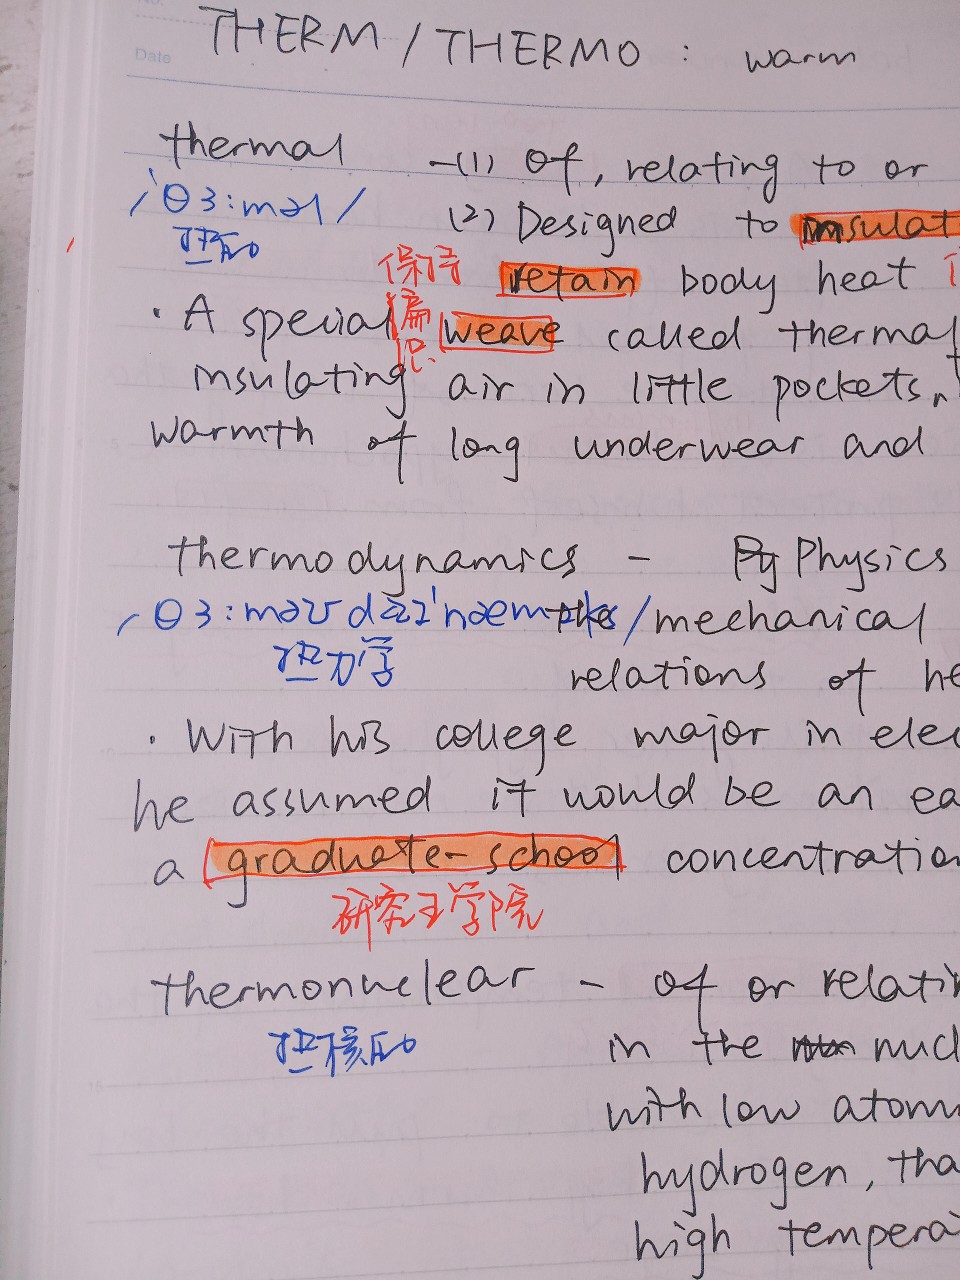 No.
Date
THERM / THERMO : warm
thermal -(1) Of, relating to or
/ˈθɜ:məl/ (2) Designed to insulat
热的
保持 retain body heat
· A special weave called thermal
编织
insulating air in little pockets,
warmth of long underwear and
thermodynamics - Physics
/θɜ:məʊdaɪˈnæmɪks/ the mechanical
热力学 relations of he
· With his college major in elec
he assumed it would be an ea
a graduate-school concentration
研究生学院
thermonuclear - of or relatin
热核的 in the nucl
with low atom
hydrogen, tha
high tempera